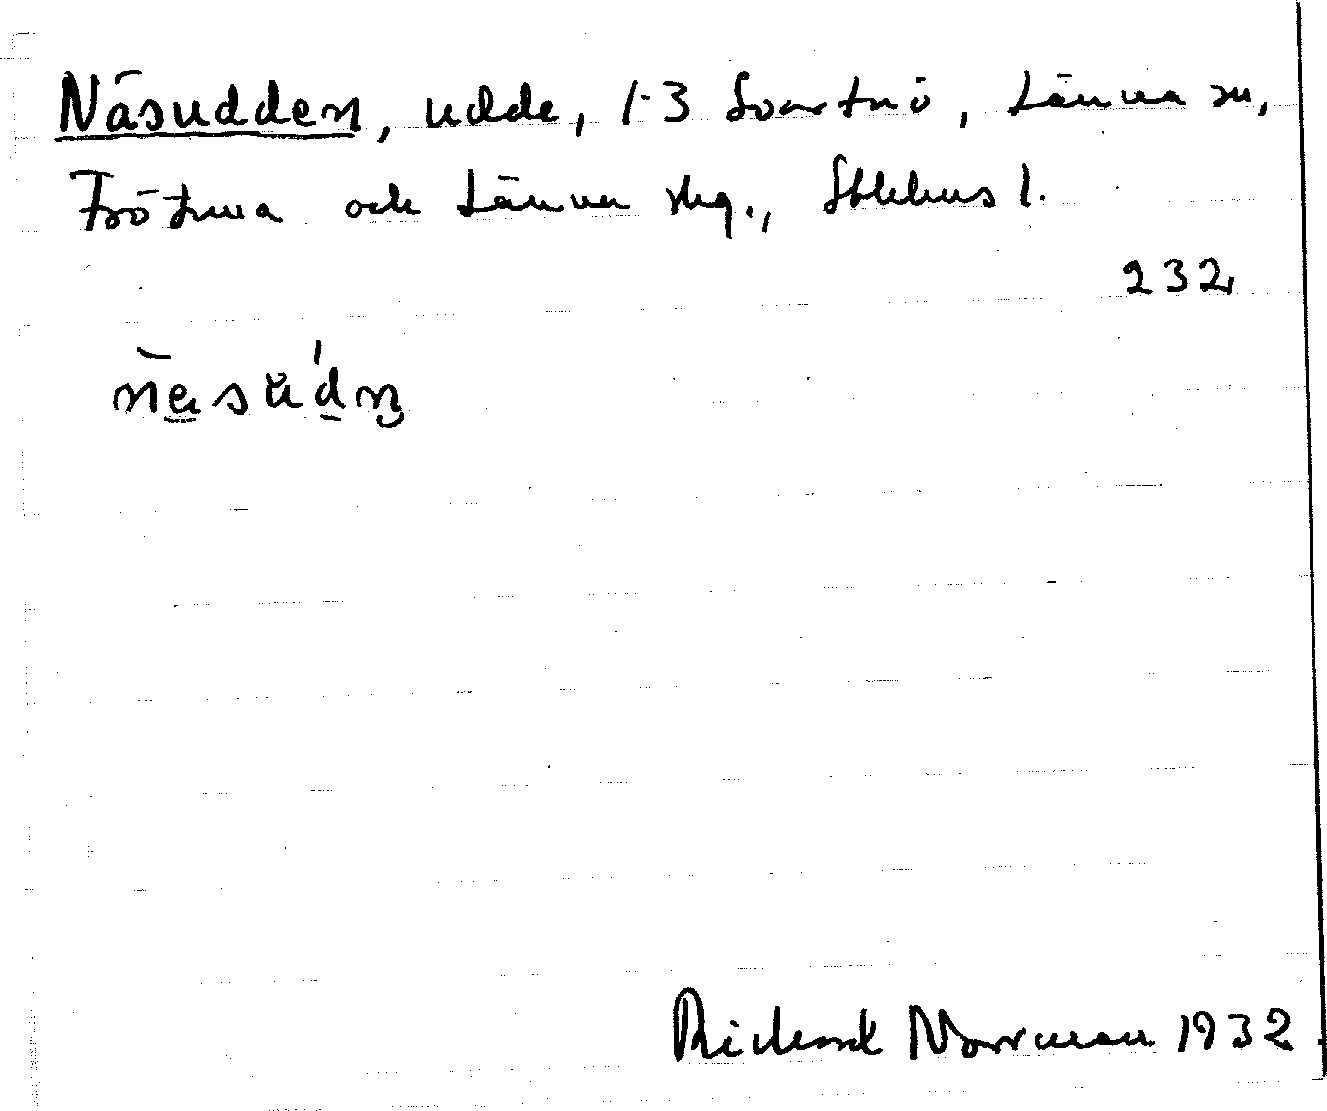 Näsudden, udde, 1-3 Svartnö, Länna sn,
Frötuna och Länna skg., Sthlms l.
232
Rickard Norrman 1932